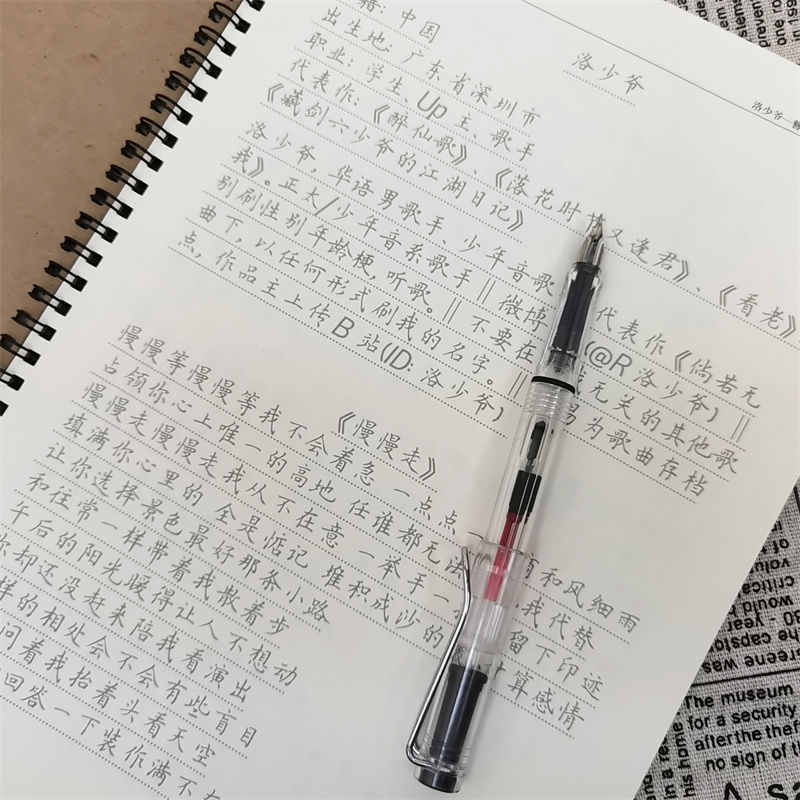 洛少爷
洛少爷
籍: 中国
出生地: 广东省深圳市
职业: 学生、Up 主、歌手
代表作: 《醉仙歌》、《落花时 又逢君》、《看老》
《藏剑六少爷的江湖日记》
洛少爷, 华语男歌手、少年音歌 代表作《倘若无
我》。正太/少年音系歌手 ‖ 微博 (@R 洛少爷) ‖
别刷性别年龄梗, 听歌。‖ 不要在 无关的其他歌
曲下, 以任何形式刷我的名字。‖ 为歌曲存档
点, 作品主上传 B 站(ID: 洛少爷)
《慢慢走》
慢慢等慢慢等我不会着急 一点点 和风细雨
占领你心上唯一的高地 任谁都无法 我代替
慢慢走慢慢走我从不在意 一举手一 留下印迹
填满你心里的 全是惦记 堆和成沙的 计算感情
让你选择景色最好那条小路
和往常一样带着我散着步
午后的阳光暖得让人不想动
你却还没赶来陪我看演出
样的相处会不会有些盲目
问着我抬着头看天空
回答一下装你满不在
The museum
for a security
after the theft
no sign of